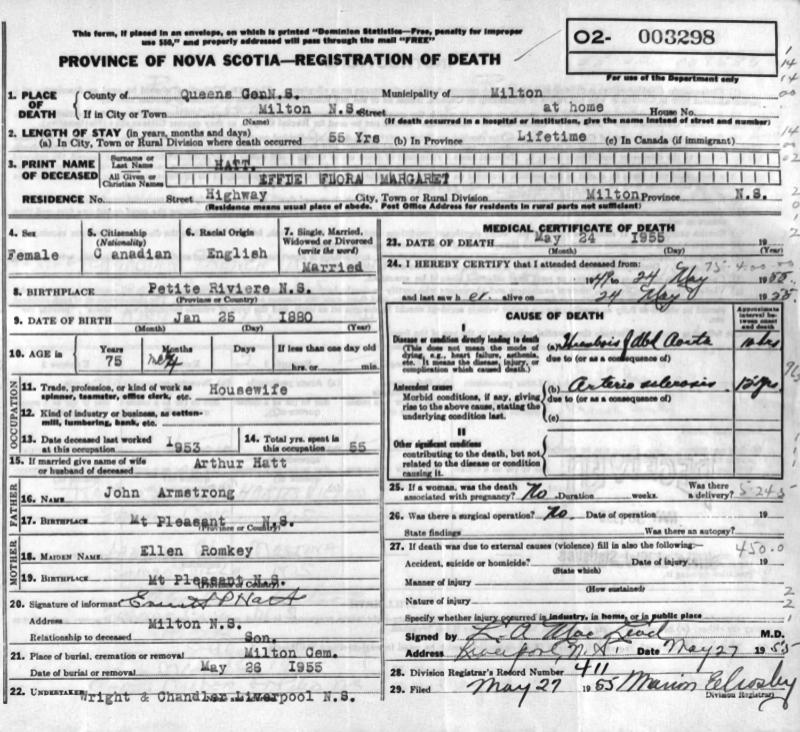 This form, if placed in an envelope, on which is printed "Dominion Statistics—Free, penalty for improper
use $50," and properly addressed will pass through the mail "FREE"
PROVINCE OF NOVA SCOTIA—REGISTRATION OF DEATH
O2- 003298
For use of the Department only
1. PLACE OF DEATH { County of Queens N.S. Municipality of Milton
If in City or Town Milton N.S. Street at home House No.
(Name) (If death occurred in a hospital or institution, give the name instead of street and number)
2. LENGTH OF STAY (in years, months and days)
(a) In City, Town or Rural Division where death occurred 55 Yrs (b) In Province Lifetime (c) In Canada (if immigrant)
3. PRINT NAME OF DECEASED { Surname or Last Name HATT
All Given or Christian Names EFFIE FLORA MARGARET
RESIDENCE No. Street Highway City, Town or Rural Division Milton Province N.S.
(Residence means usual place of abode. Post Office Address for residents in rural parts not sufficient)
4. Sex
Female
5. Citizenship
(Nationality)
C anadian
6. Racial Origin
English
7. Single, Married, Widowed or Divorced
(write the word)
Married
8. BIRTHPLACE Petite Riviere N.S.
(Province or Country)
9. DATE OF BIRTH Jan 25 1880
(Month) (Day) (Year)
10. AGE in Years Months Days If less than one day old
75 4 hrs. or min.
OCCUPATION
11. Trade, profession, or kind of work as spinner, teamster, office clerk, etc. Housewife
12. Kind of industry or business, as cotton-mill, lumbering, bank, etc.
13. Date deceased last worked at this occupation 1953
14. Total yrs. spent in this occupation 55
15. If married give name of wife or husband of deceased Arthur Hatt
FATHER
16. NAME John Armstrong
17. BIRTHPLACE Mt Pleasant N.S.
(Province or Country)
MOTHER
18. MAIDEN NAME Ellen Romkey
19. BIRTHPLACE Mt Pleasant N.S.
(Province or Country)
20. Signature of informant Hatt
Address Milton N.S.
Relationship to deceased Son.
21. Place of burial, cremation or removal Milton Cem.
Date of burial or removal May 26 1955
22. UNDERTAKER Wright & Chandler Liverpool N.S.
MEDICAL CERTIFICATE OF DEATH
23. DATE OF DEATH May 24 1955 19
(Month) (Day) (Year)
24. I HEREBY CERTIFY that I attended deceased from:
1949 to 24 May 1955
and last saw her alive on 24 May 1955
CAUSE OF DEATH
Approximate interval between onset and death
I
Disease or condition directly leading to death
(This does not mean the mode of dying, e.g., heart failure, asthenia, etc. It means the disease, injury, or complication which caused death.)
(a) Thrombosis of Abd. Aorta 10 hrs
due to (or as a consequence of)
Antecedent causes
Morbid conditions, if any, giving rise to the above cause, stating the underlying condition last.
(b) Arterio sclerosis
due to (or as a consequence of)
(c)
II
Other significant conditions
contributing to the death, but not related to the disease or condition causing it.
25. If a woman, was the death associated with pregnancy? No Duration weeks. Was there a delivery?
26. Was there a surgical operation? No. Date of operation 19
State findings Was there an autopsy?
27. If death was due to external causes (violence) fill in also the following:— 450.0
Accident, suicide or homicide? Date of injury 19
(State which)
Manner of injury
(How sustained)
Nature of injury
Specify whether injury occurred in industry, in home, or in public place
Signed by Mac Leod M.D.
Address Liverpool, N.S. Date May 27 1955
28. Division Registrar's Record Number 411
29. Filed May 27 1955 Marion E Crosby
Division Registrar